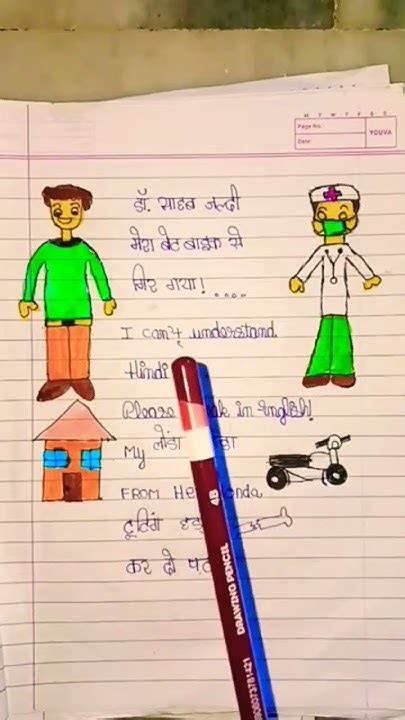 M T W T F S S
Page No.:
Date:
YOUVA
डॉ. साहब जल्दी
मेरा बेट बाइक से
गिर गया! ....
I can't understand
Hindi
Please in English!
My लोंडा
FROM
टूटिंग
कर दो
4B
DRAWING PENCIL